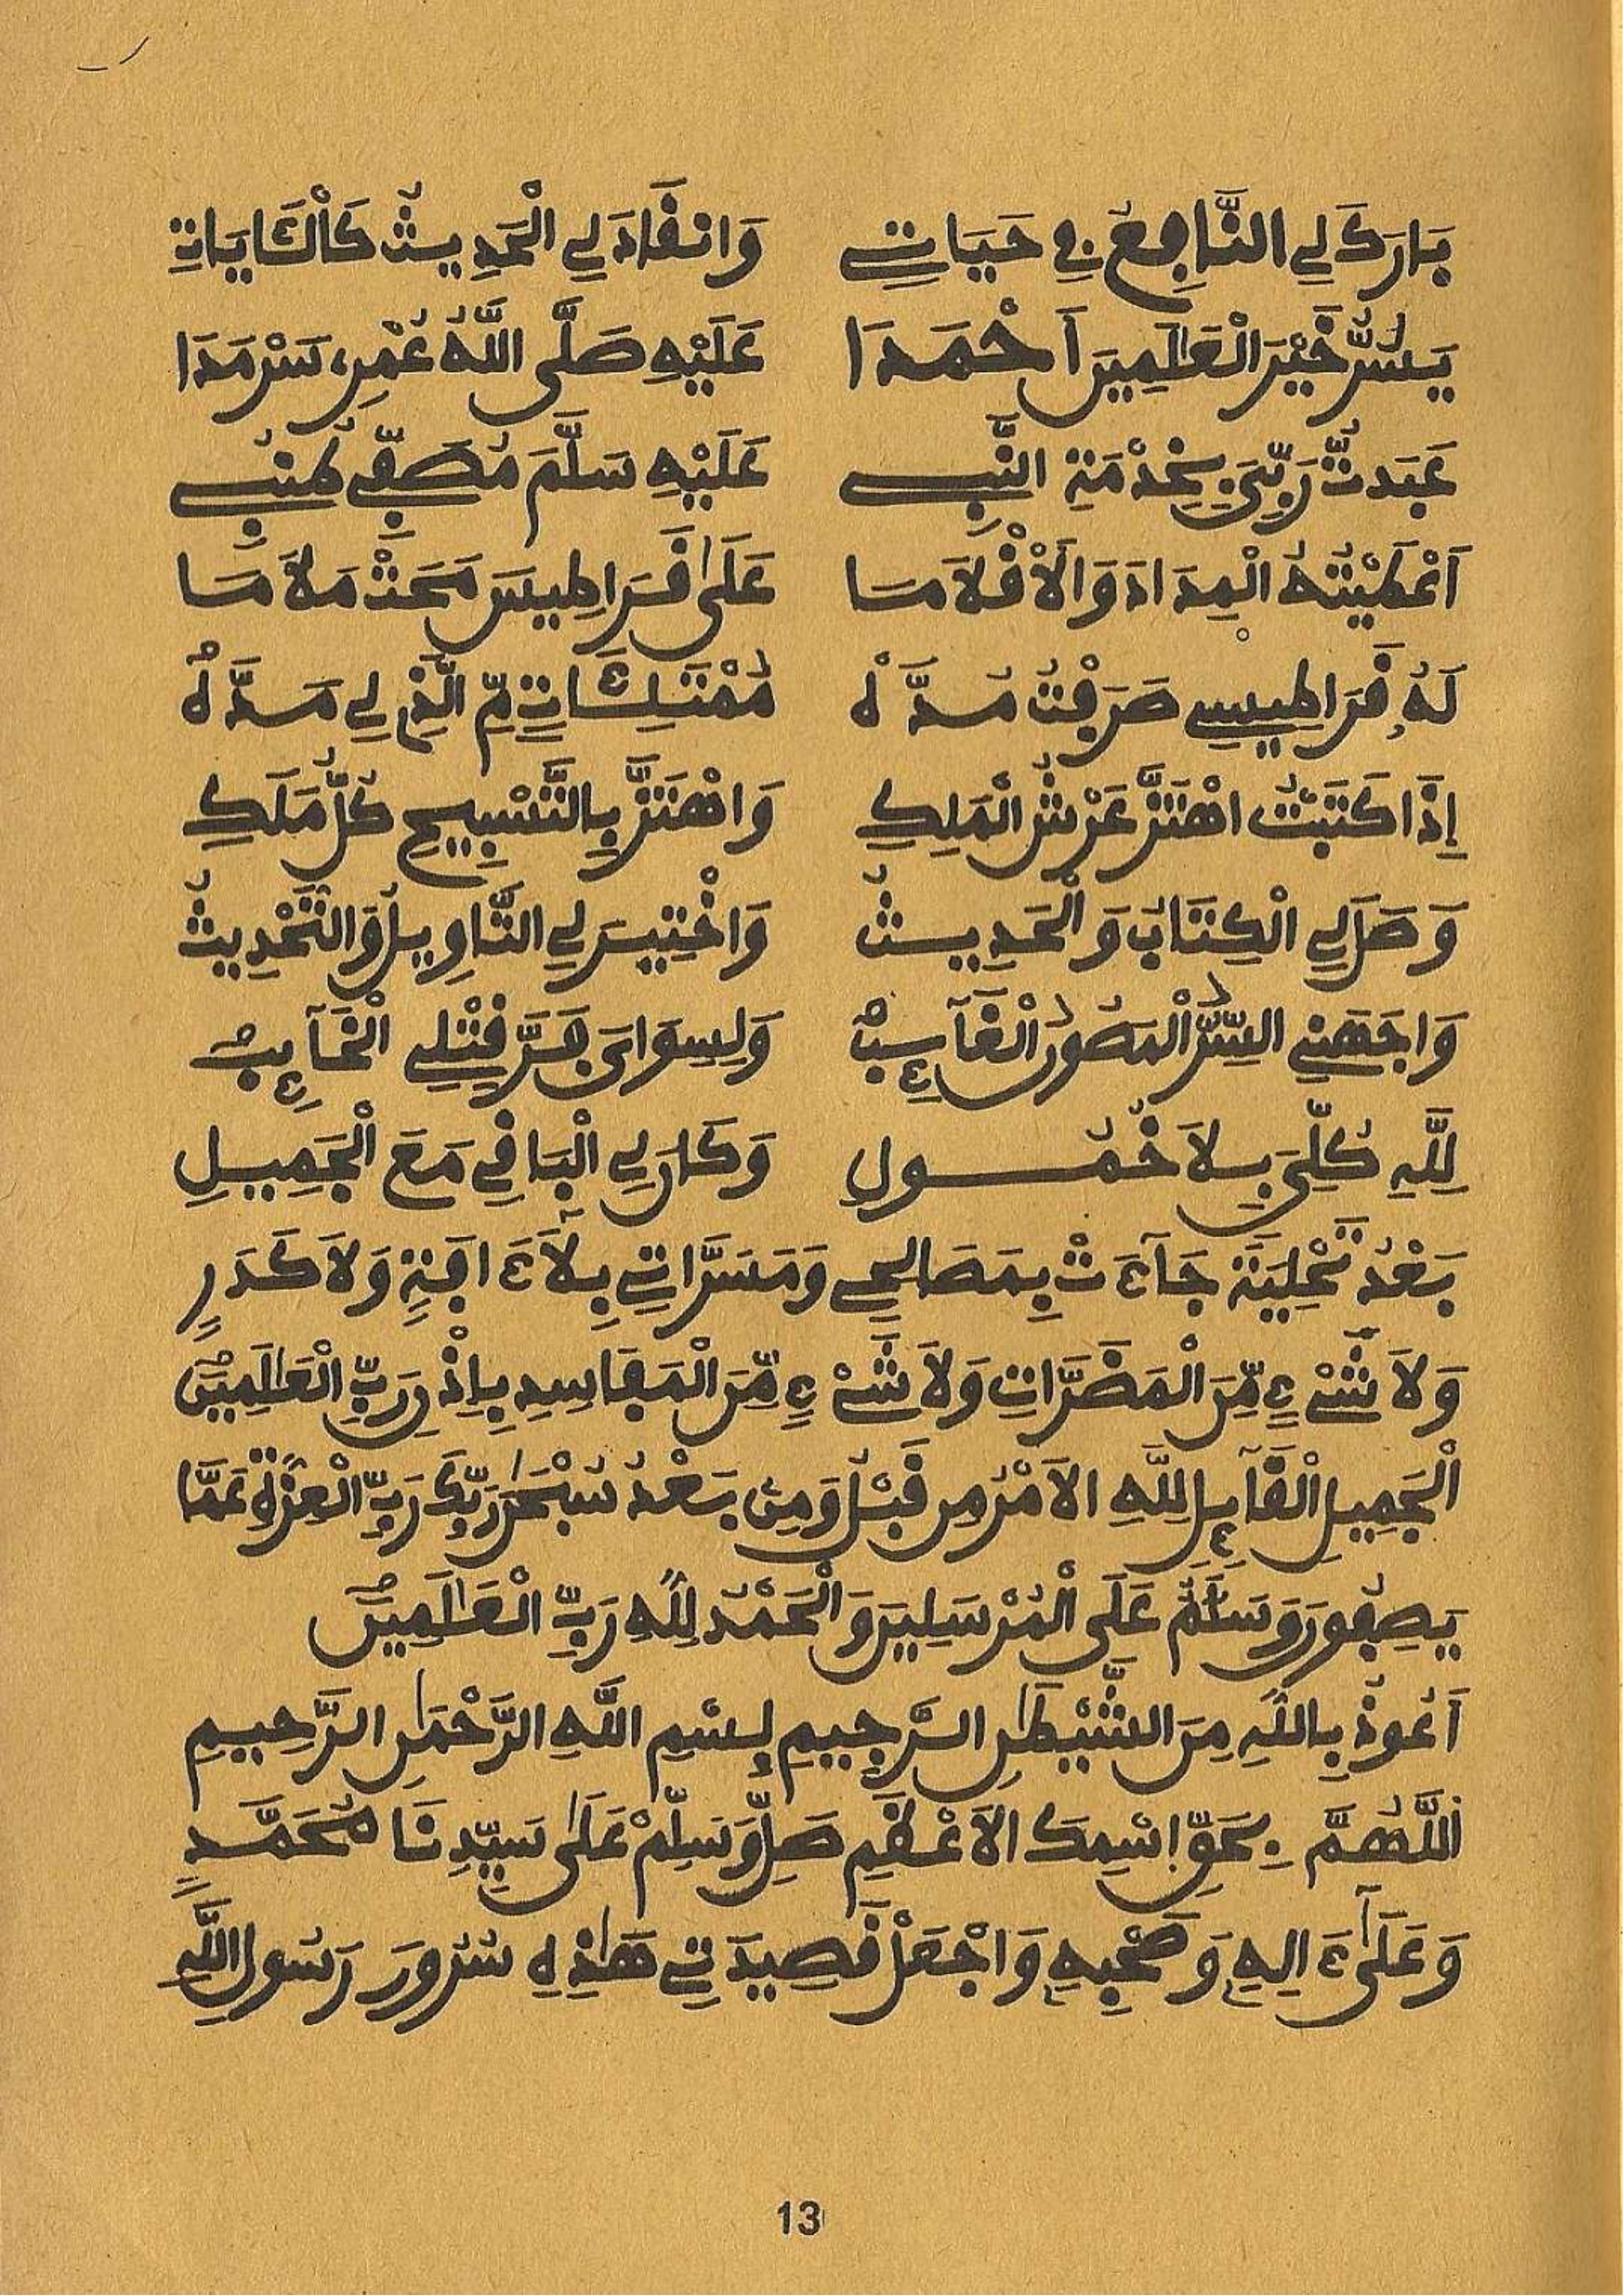 بَارَكَ لِي النَّافِعُ فِي حَيَاتِي وَانْقَادَ لِي الْحَدِيثُ كَالْـَٔايَاتِ
يَسُرُّ خَيْرَ الْعَالَمِينَ أَحْمَدَا عَلَيْهِ صَلَّى اللَّهُ عُمْرِي سَرْمَدَا
عَبَدتُّ رَبِّيَ بِخِدْمَةِ النَّبِي عَلَيْهِ سَلَّمَ مُصَفِّي طُنُبِي
أَعْطَيْتُهُ الْمِدَادَ وَالْأَقْلَامَا عَلَى قَرَاطِيسَ مَحَتْ مَلَامَا
لَهُ قَرَاطِيسِي صَرَفْتُ مُدَّهْ مُمْتَلِـَٔاتٍ مِّ الَّذِي لِي مَدَّهُ
إِذَا كَتَبْتُ اهْتَزَّ عَرْشُ الْمَلِكِ وَاهْتَزَّ بِالتَّسْبِيحِ كُلُّ مَلَكِ
وَصَلَ لِي الْكِتَابُ وَالْحَدِيثُ وَاخْتِيرَ لِي التَّاوِيلُ وَالتَّحْدِيثُ
وَاجَهَنِي السِّرُّ الْمَصُونُ الْغَآئِبُ وَلِسِوَايَ فَرَّ قَتْلِي الْخَآئِبُ
لِلَّهِ كُلِّيَ بِلَا خُمُولِ وَكَانَ لِي الْبَاقِي مَعَ الْجَمِيلِ
بَعْدُ تَحْلِيَة جَآءَتْ بِمَصَالِحِي وَمَسَرَّاتِي بِلَا ءَافَةٍ وَلَا كَدَرٍ
وَلَا شَيْءٍ مِّنَ الْمَضَرَّاتِ وَلَا شَيْءٍ مِّنَ الْمَفَاسِدِ بِإِذْنِ رَبِّ الْعَالَمِينَ
الْجَمِيلِ الْقَآئِلِ لِلَّهِ الْأَمْرُ مِن قَبْلُ وَمِنۢ بَعْدُ سُبْحَٰنَ رَبِّكَ رَبِّ الْعِزَّةِ عَمَّا
يَصِفُونَ وَسَلَٰمٌ عَلَى الْمُرْسَلِينَ وَالْحَمْدُ لِلَّهِ رَبِّ الْعَٰلَمِينَ
أَعُوذُ بِاللَّهِ مِنَ الشَّيْطَٰنِ الرَّجِيمِ بِسْمِ اللَّهِ الرَّحْمَٰنِ الرَّحِيمِ
اللَّهُمَّ بِحَقِّ اسْمِكَ الْأَعْظَمِ صَلِّ وَسَلِّمْ عَلَىٰ سَيِّدِنَا مُحَمَّدٍ
وَعَلَىٰ ءَالِهِ وَصَحْبِهِ وَاجْعَلْ قَصِيدَتِي هَٰذِهِ سُرُورَ رَسُولِ اللَّهِ
13